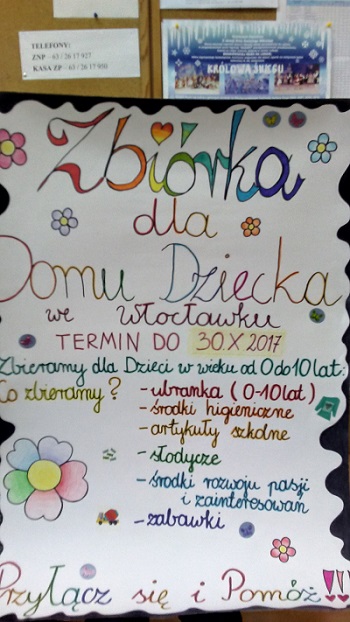 TELEFONY:
ZNP - 63 / 26 17 927
KASA ZP - 63 / 26 17 950
KRÓLOWA ŚNIEGU
Zbiórka
dla
Domu Dziecka
we Włocławku
TERMIN DO 30 X 2017
Zbieramy dla Dzieci w wieku od 0 do 10 lat:
Co zbieramy? - ubranka (0-10 lat)
- środki higieniczne
- artykuły szkolne
- słodycze
- środki rozwoju pasji
i zainteresowań
- zabawki
Przyłącz się i Pomóż!!